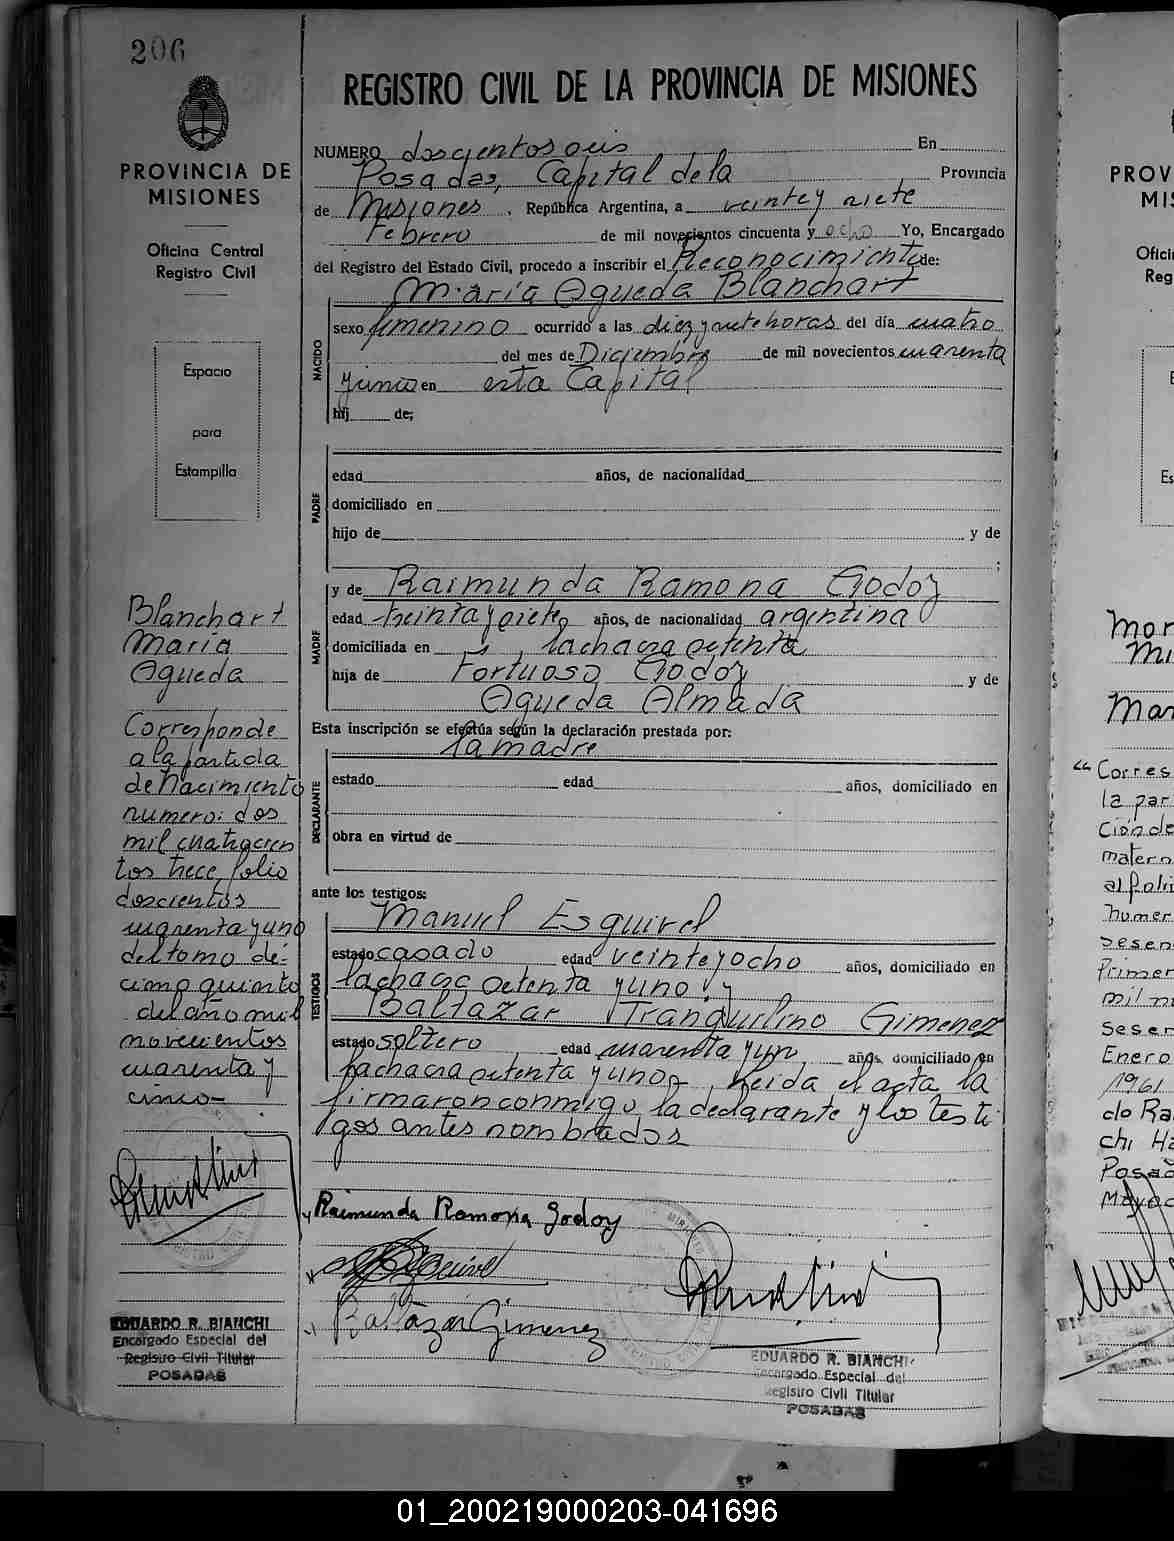 206
PROVINCIA DE
MISIONES
Oficina Central
Registro Civil
Espacio
para
Estampilla
Blanchart
María
Agueda
Corresponde
a la partida
de Nacimiento
numero: dos
mil cuatrocien
tos trece, folio
doscientos
cuarenta y uno
del tomo dé-
cimo quinto
del año mil
novecientos
cuarenta y
cinco-
EDUARDO R. BIANCHI
Encargado Especial del
Registro Civil Titular
POSADAS
REGISTRO CIVIL DE LA PROVINCIA DE MISIONES
NUMERO doscientos seis En
Posadas, Capital de la Provincia
de Misiones, República Argentina, a veinte y siete
Febrero de mil novecientos cincuenta y ocho Yo, Encargado
del Registro del Estado Civil, procedo a inscribir el Reconocimiento de:
María Agueda Blanchart
NACIDO
sexo femenino ocurrido a las diez y siete horas del día cuatro
del mes de Diciembre de mil novecientos cuarenta
y cinco en esta Capital
hij de;
PADRE
edad años, de nacionalidad
domiciliado en
hijo de y de
;
MADRE
y de Raimunda Ramona Godoy
edad treinta y siete años, de nacionalidad argentina
domiciliada en la chacra setenta
hija de Fortuoso Godoy y de
Agueda Almada
Esta inscripción se efectúa según la declaración prestada por:
la madre
DECLARANTE
estado edad años, domiciliado en
obra en virtud de
ante los testigos:
TESTIGOS
Manuel Esquivel
estado casado edad veinte y ocho años, domiciliado en
la chacra setenta y uno y
Baltazar Tranquilino Gimenez
estado soltero edad cuarenta y un años, domiciliado en
la chacra setenta y uno- Leida el acta la
firmaron conmigo la declarante y los testi
gos antes nombrados
Raimunda Ramona Godoy
Esquivel
Baltazar Gimenez
EDUARDO R. BIANCHI
Encargado Especial del
Registro Civil Titular
POSADAS
PROV
MIS
Ofici
Reg
E
Es
Mor
Mi
Mar
“Corres
la par
ción de
matern
al foli
numer
sesen
Primer
mil n
seser
Enero
1961
do Ra
chi Ha
Posad
01_200219000203-041696